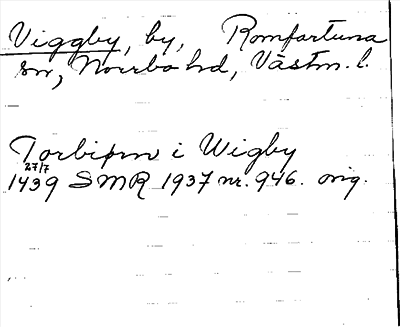 Viggby, by, Romfartuna
sn, Norrbo hd, Västm. l.
Torbiorn i Wigby
27/7
1439 SMR 1937 nr. 946. orig.